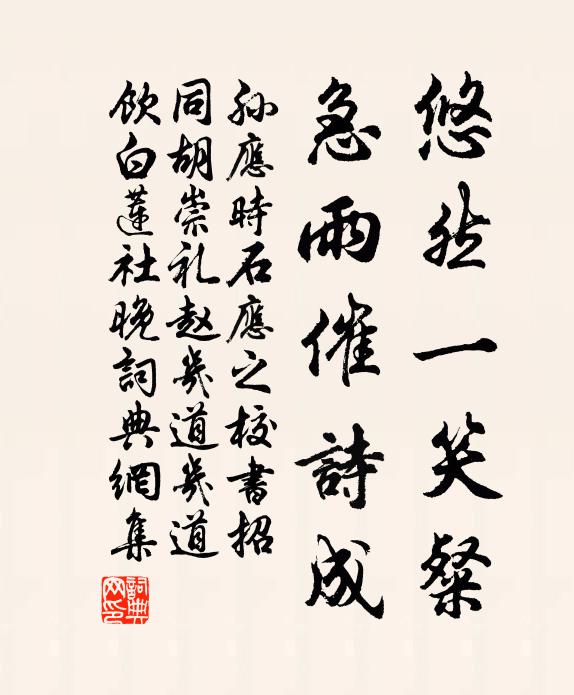 悠然一笑粲
急雨催詩成
孙應時石應之校書招
同胡崇礼赵幾道幾道
飲白蓮社晚詞典網集
詞典
网印